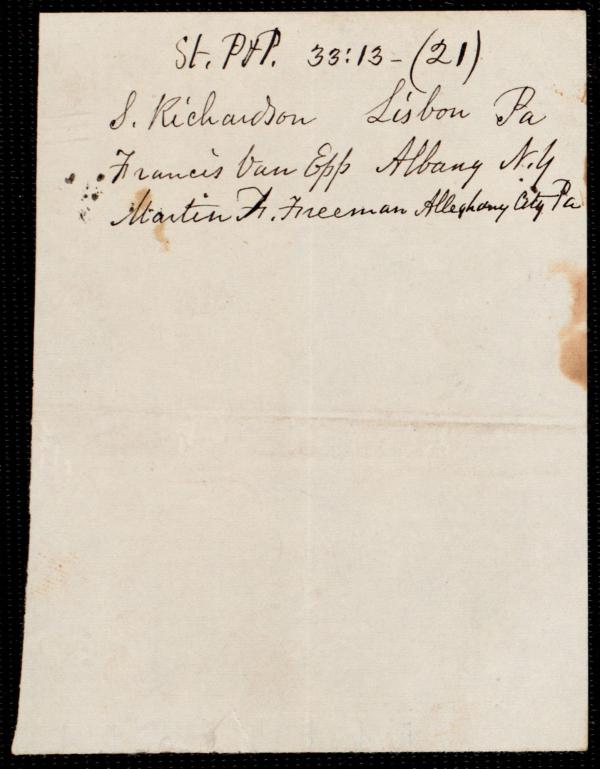 St. P&P. 33:13-(21)
S. Richardson Lisbon Pa
Francis Van Epp Albany N.Y
Martin H. Freeman Alleghany City Pa